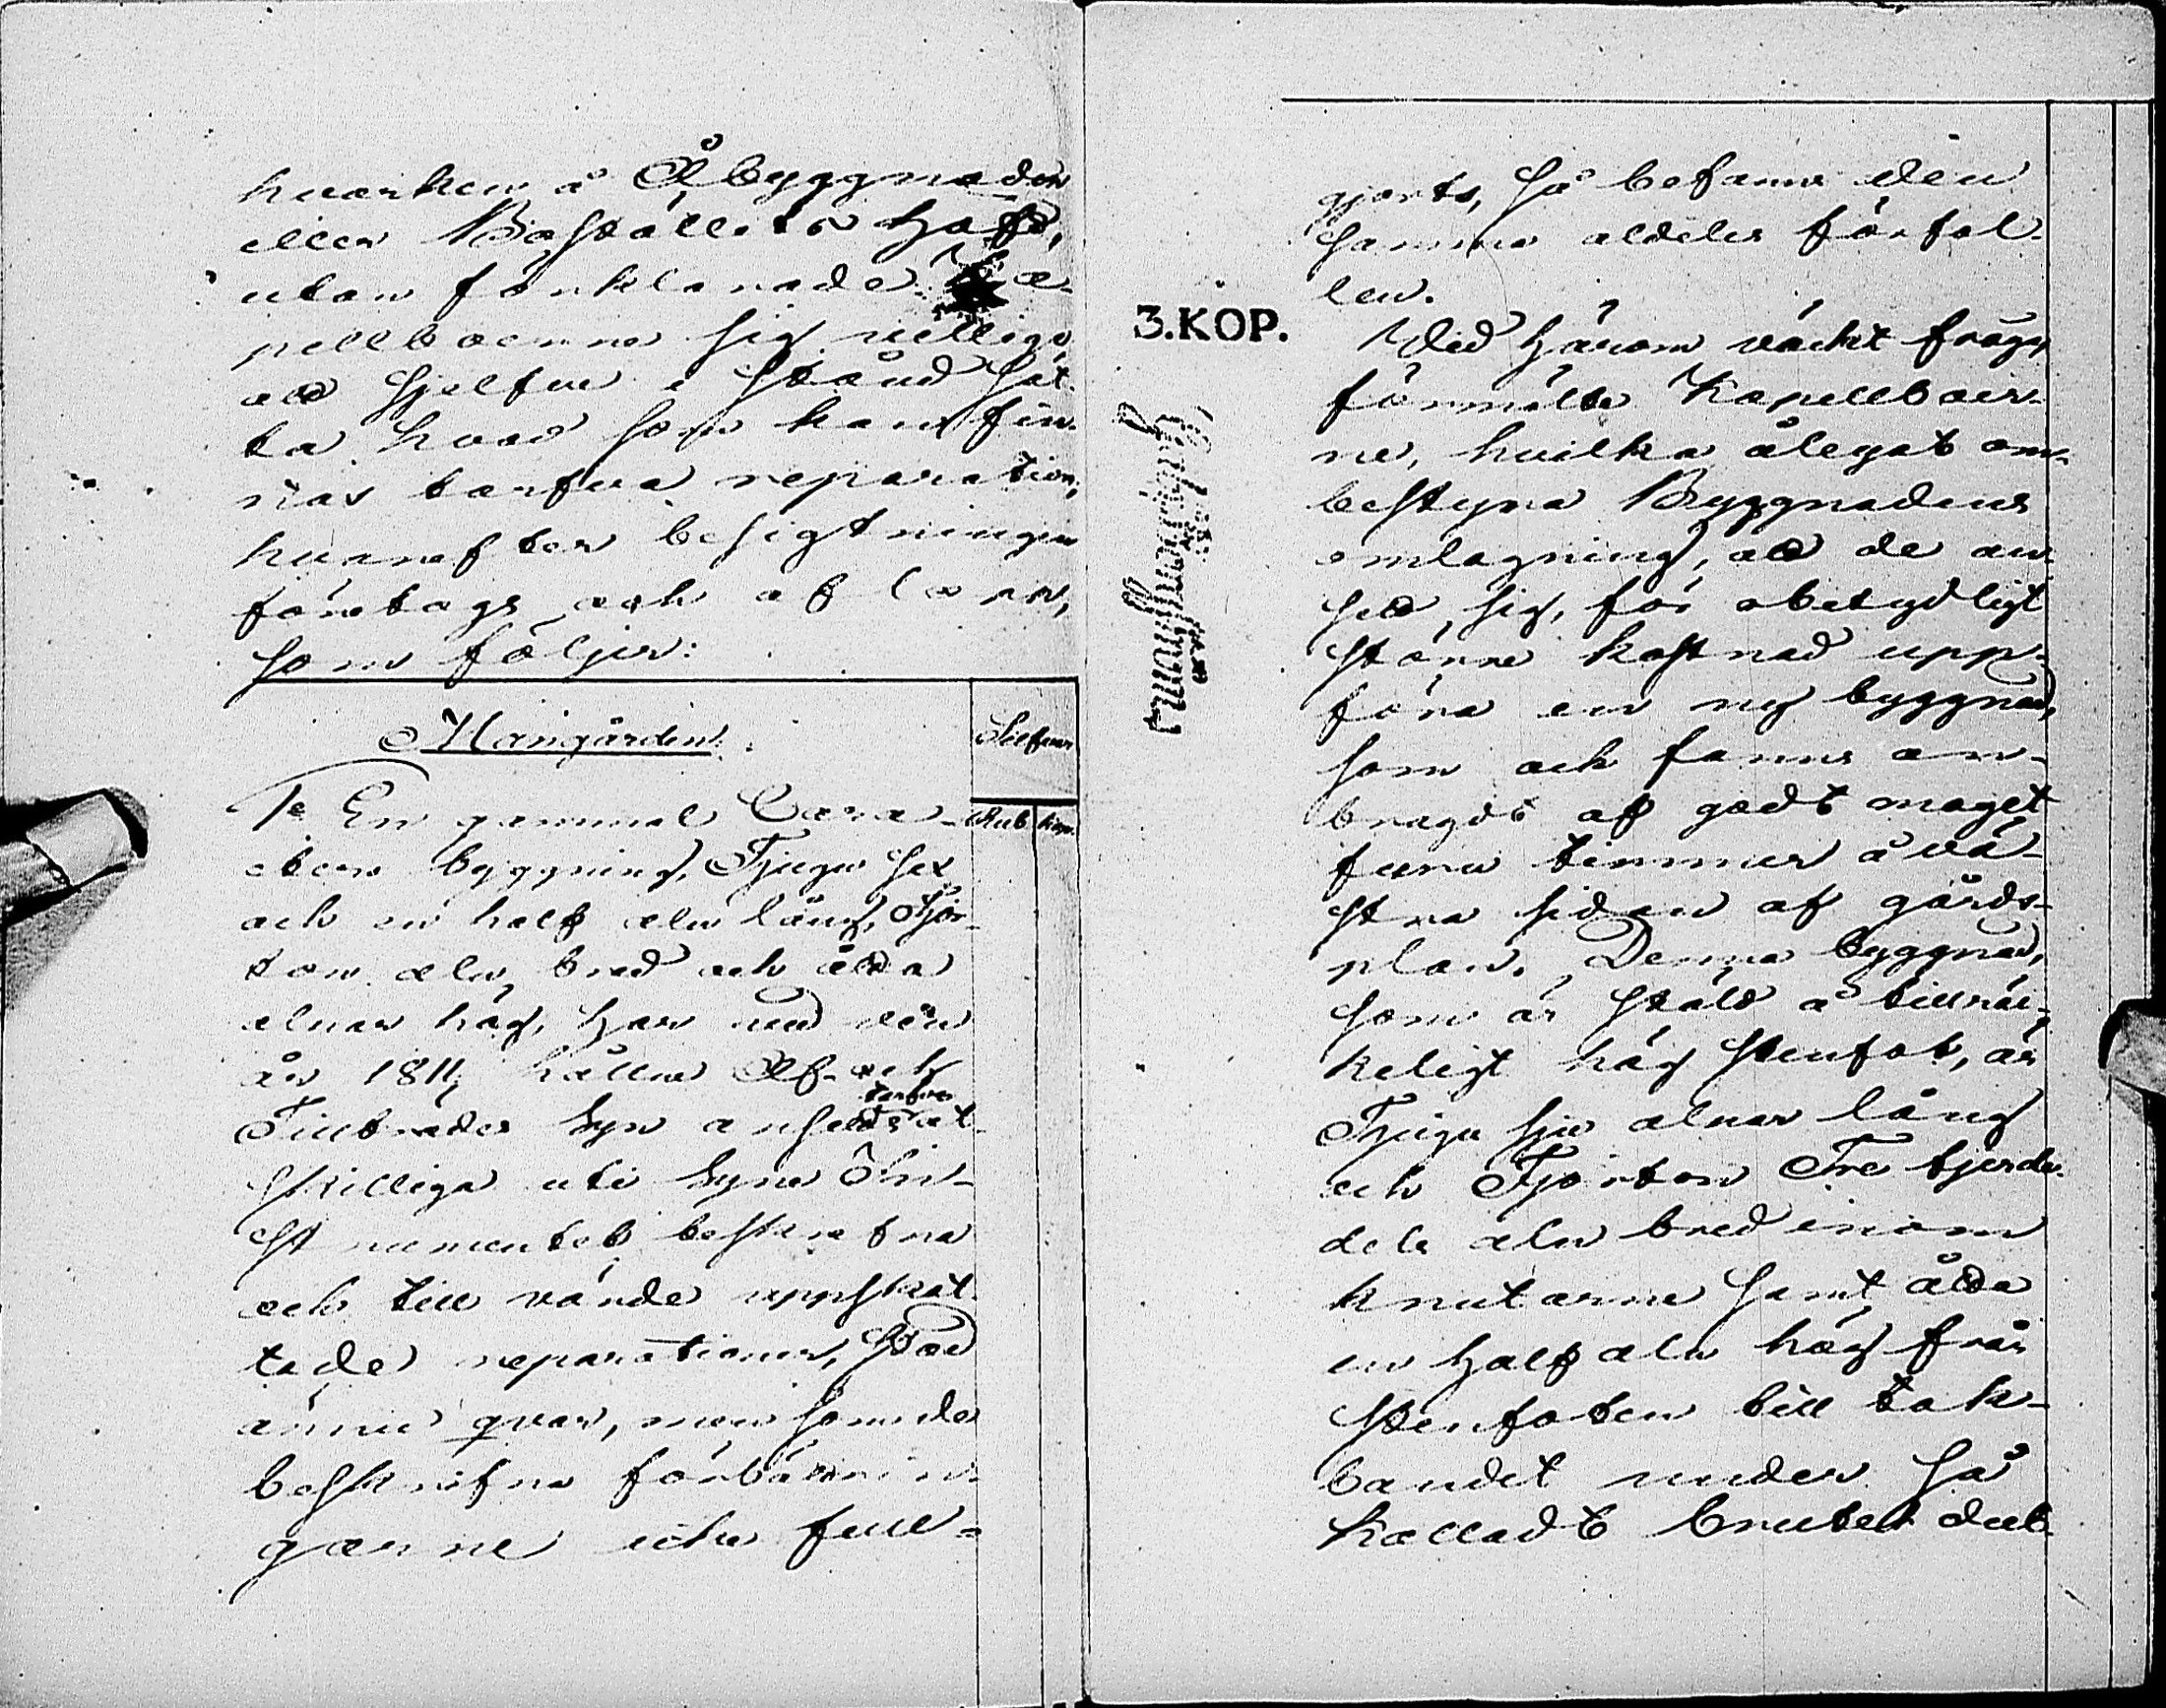 hvarken å Åbyggnaden
eller Boställets Häfd,
utan förklarade Ka-
pellboerne sig villige
att sjelfve i stånd sät-
ta hvad som kan fin-
nas tarfva reparation;
hvarefter besigtningen
företogs och aflopp,
som följer:
Mangården.
Silfver
Rub. Kop.
1o En gammal Cara-
cters byggning, Tjugu sex
och en half aln lång, Fjor-
ton aln bred och åtta
alnar hög, har vid den
år 1811 hållne Af- och
Tillträdes Syn ansetts tarfva åt-
skilliga uti Syne In-
strumentet beskrefne
och till värde uppskat-
tade reparationer, stod
ännu qvar, men som de
beskrifne förbättrin-
garne icke full-
gjorts, så befanns den
samma aldeles förfal-
len.
3.KOP.
Vid härom väckt fråga
förmälte Kapellboer-
ne, hvilka ålegat om-
bestyra Byggnadens
omlagning, att de an-
sett sig, för obetydligt
större kostnad upp-
föra en ny byggnad,
som och fanns an-
bragdt af godt moget
furu timmer å vä-
stra sidan af gårds-
plan. Denna byggnad,
som är stäld å tillräc-
keligt hög stenfot, är
Tjugu sju alnar lång
och Fjorton Tre fjerde-
dels aln bred inom
knutarne samt åtta
en half aln hög från
Stenfoten till tak-
bandet under så
kalladt brutet dub-